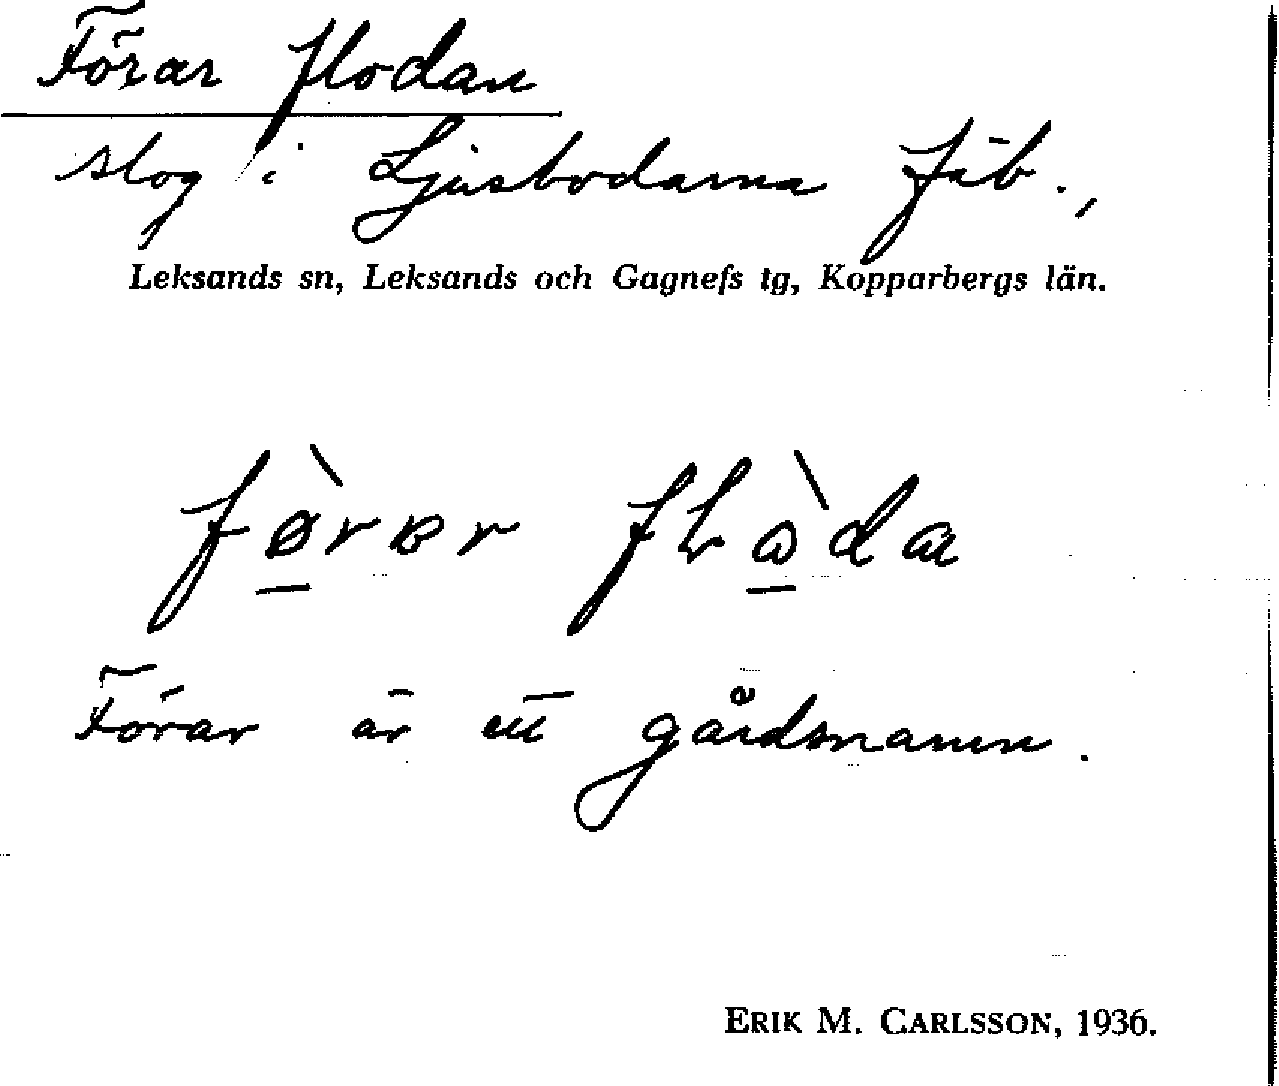 Förar flodan
slog i Ljusbodarna fäb.,
Leksands sn, Leksands och Gagnefs tg, Kopparbergs län.
fø̲̀rɐr fLɷ̲̀da
Förar är ett gårdsnamn.
ERIK M. CARLSSON, 1936.